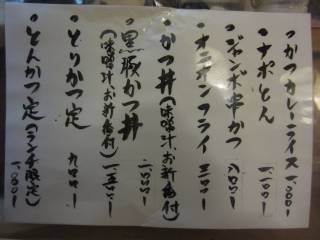 ・かつカレーライス 一、〇〇〇ー
・ナポとん 一、一〇〇ー
・ジャンボ串かつ 八〇〇ー
・オニオンフライ 三〇〇ー
・かつ丼(味噌汁、お新香付) 一、一〇〇ー
・黒豚かつ丼(味噌汁、お新香付) 一、五〇〇ー
・とりかつ定 九〇〇ー
・とんかつ定(ランチ限定) 一、〇〇〇ー